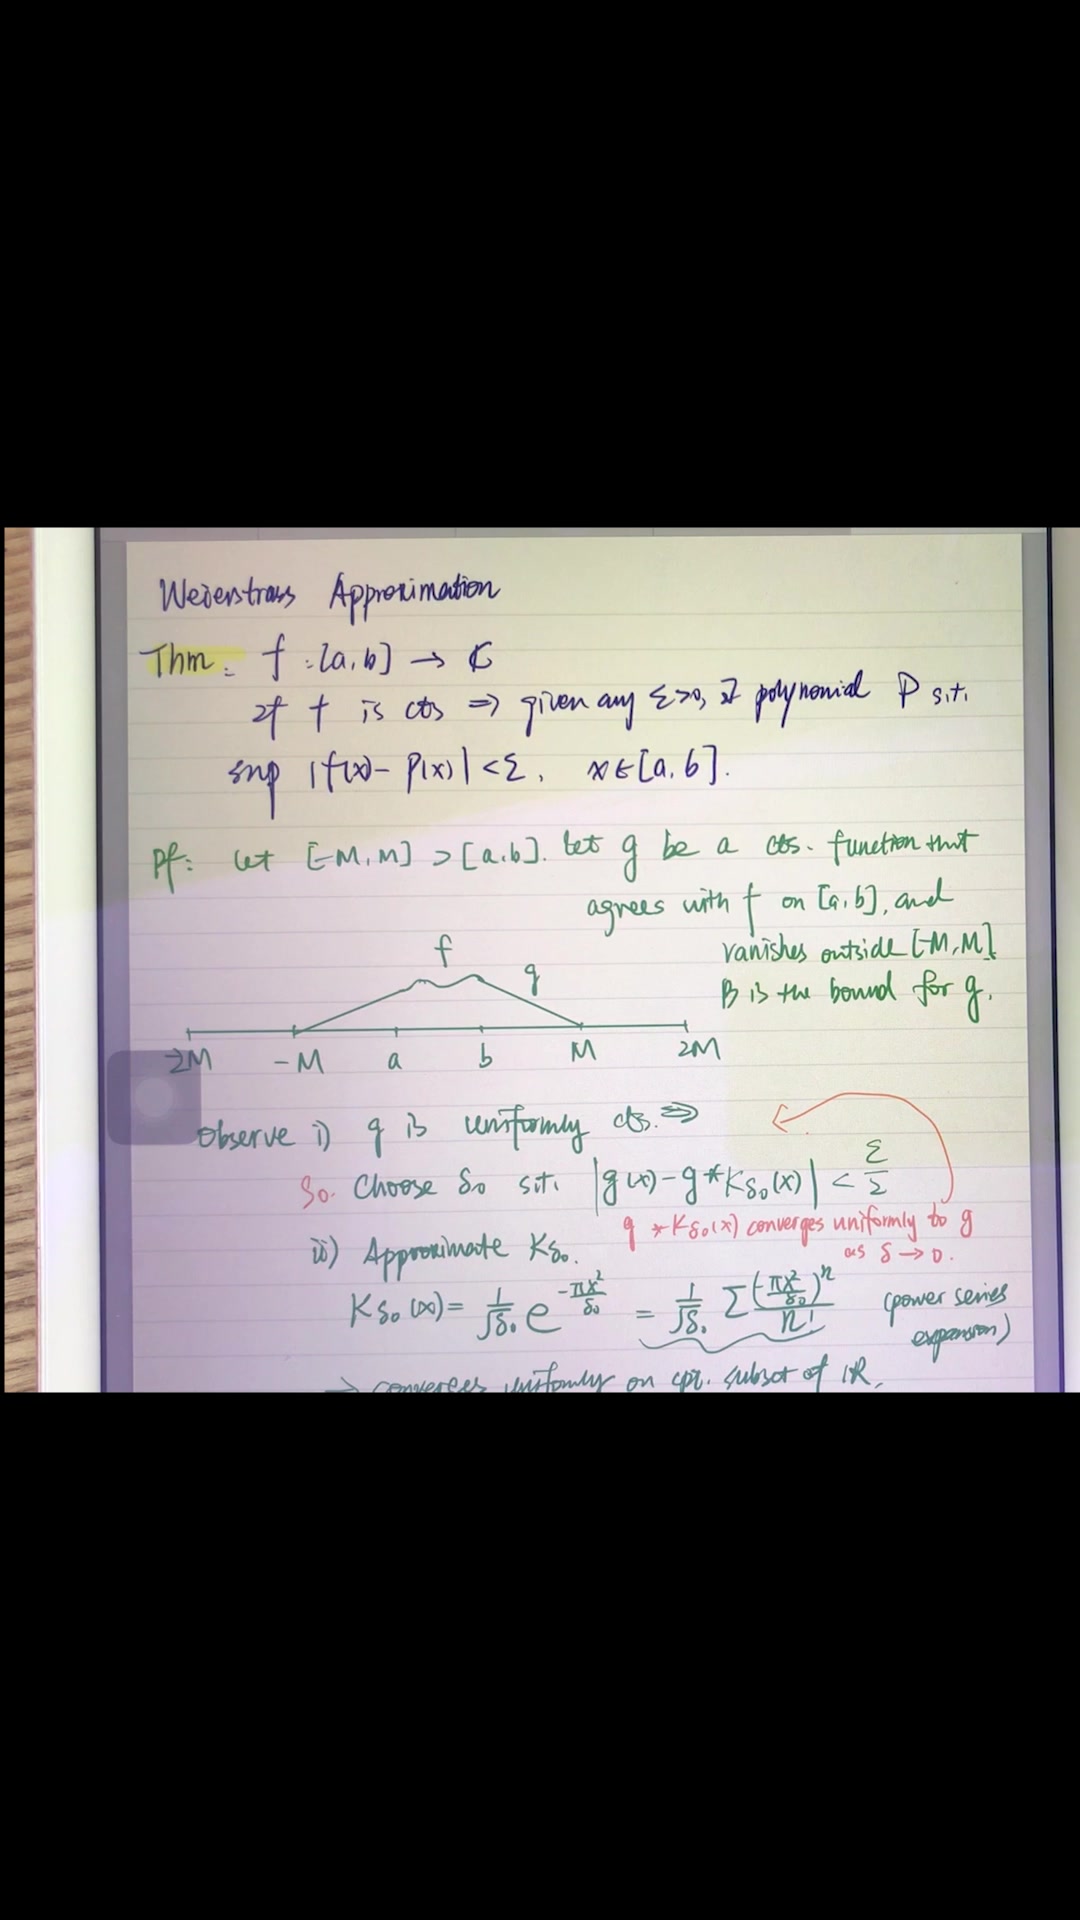 Weierstrass Approximation
Thm: f: [a,b] → ℂ
If f is cts ⇒ given any ε>0, ∃ polynomial P s.t.
sup |f(x)- P(x)| < ε, x∈[a,b].
Pf: Let [-M,M] ⊃ [a,b]. Let g be a cts. function that
agrees with f on [a,b], and
vanishes outside [-M,M].
B is the bound for g.
f
g
-2M -M a b M 2M
Observe i) g is uniformly cts. ⇒
So. Choose δ₀ s.t. |g(x)-g*Kδ₀(x)| < ε/2
g *Kδ₀(x) converges uniformly to g
as δ → 0.
ii) Approximate Kδ₀.
Kδ₀(x) = 1/√δ₀ e^(-πx²/δ₀) = 1/√δ₀ Σ (-πx²/δ₀)ⁿ/n! (power series
expansion)
→ converges uniformly on cpt. subset of ℝ.